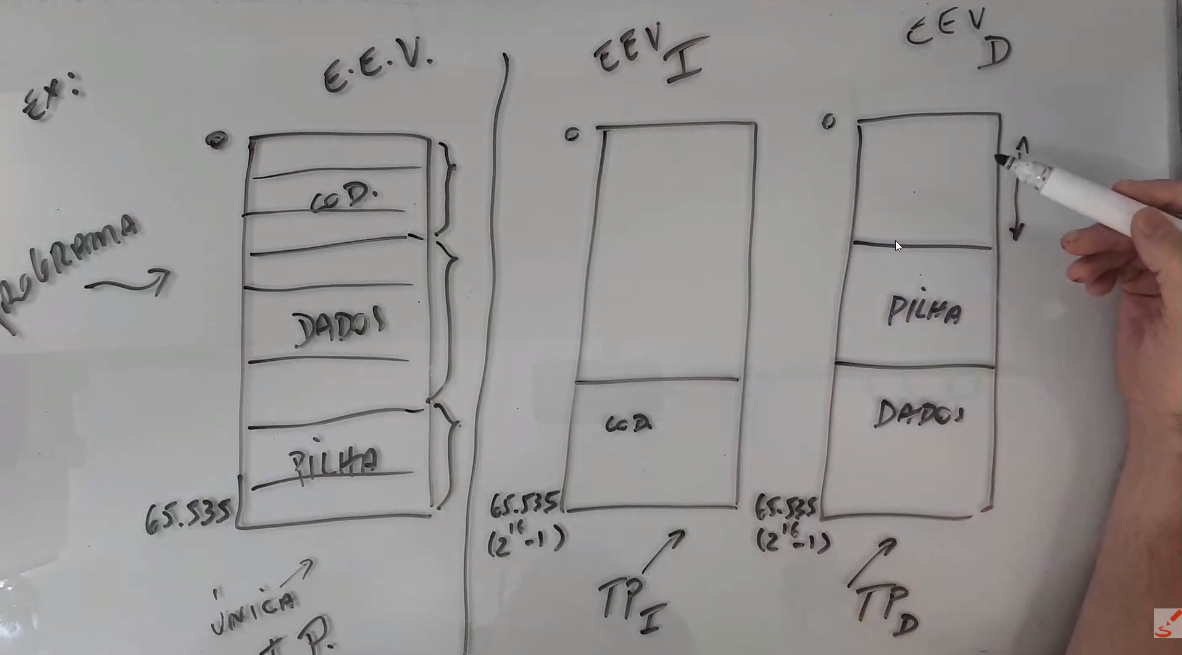 Ex:
PROGRAMA
E.E.V.
0
COD.
DADOS
PILHA
65.535
ÚNICA
T.P.
EEV I
0
COD.
65.535
(2^16-1)
TP I
EEV D
0
PILHA
DADOS
65.535
(2^16-1)
TP D